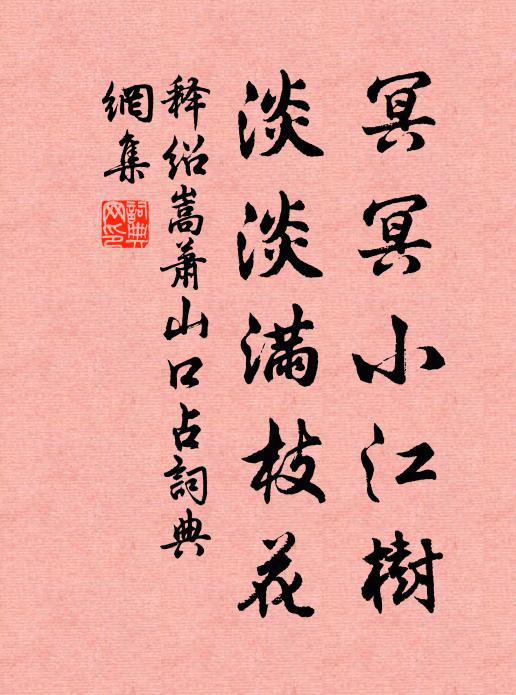 冥冥小江樹
淡淡滿枝花
释绍嵩蕭山口占詞典
網集
詞典網印